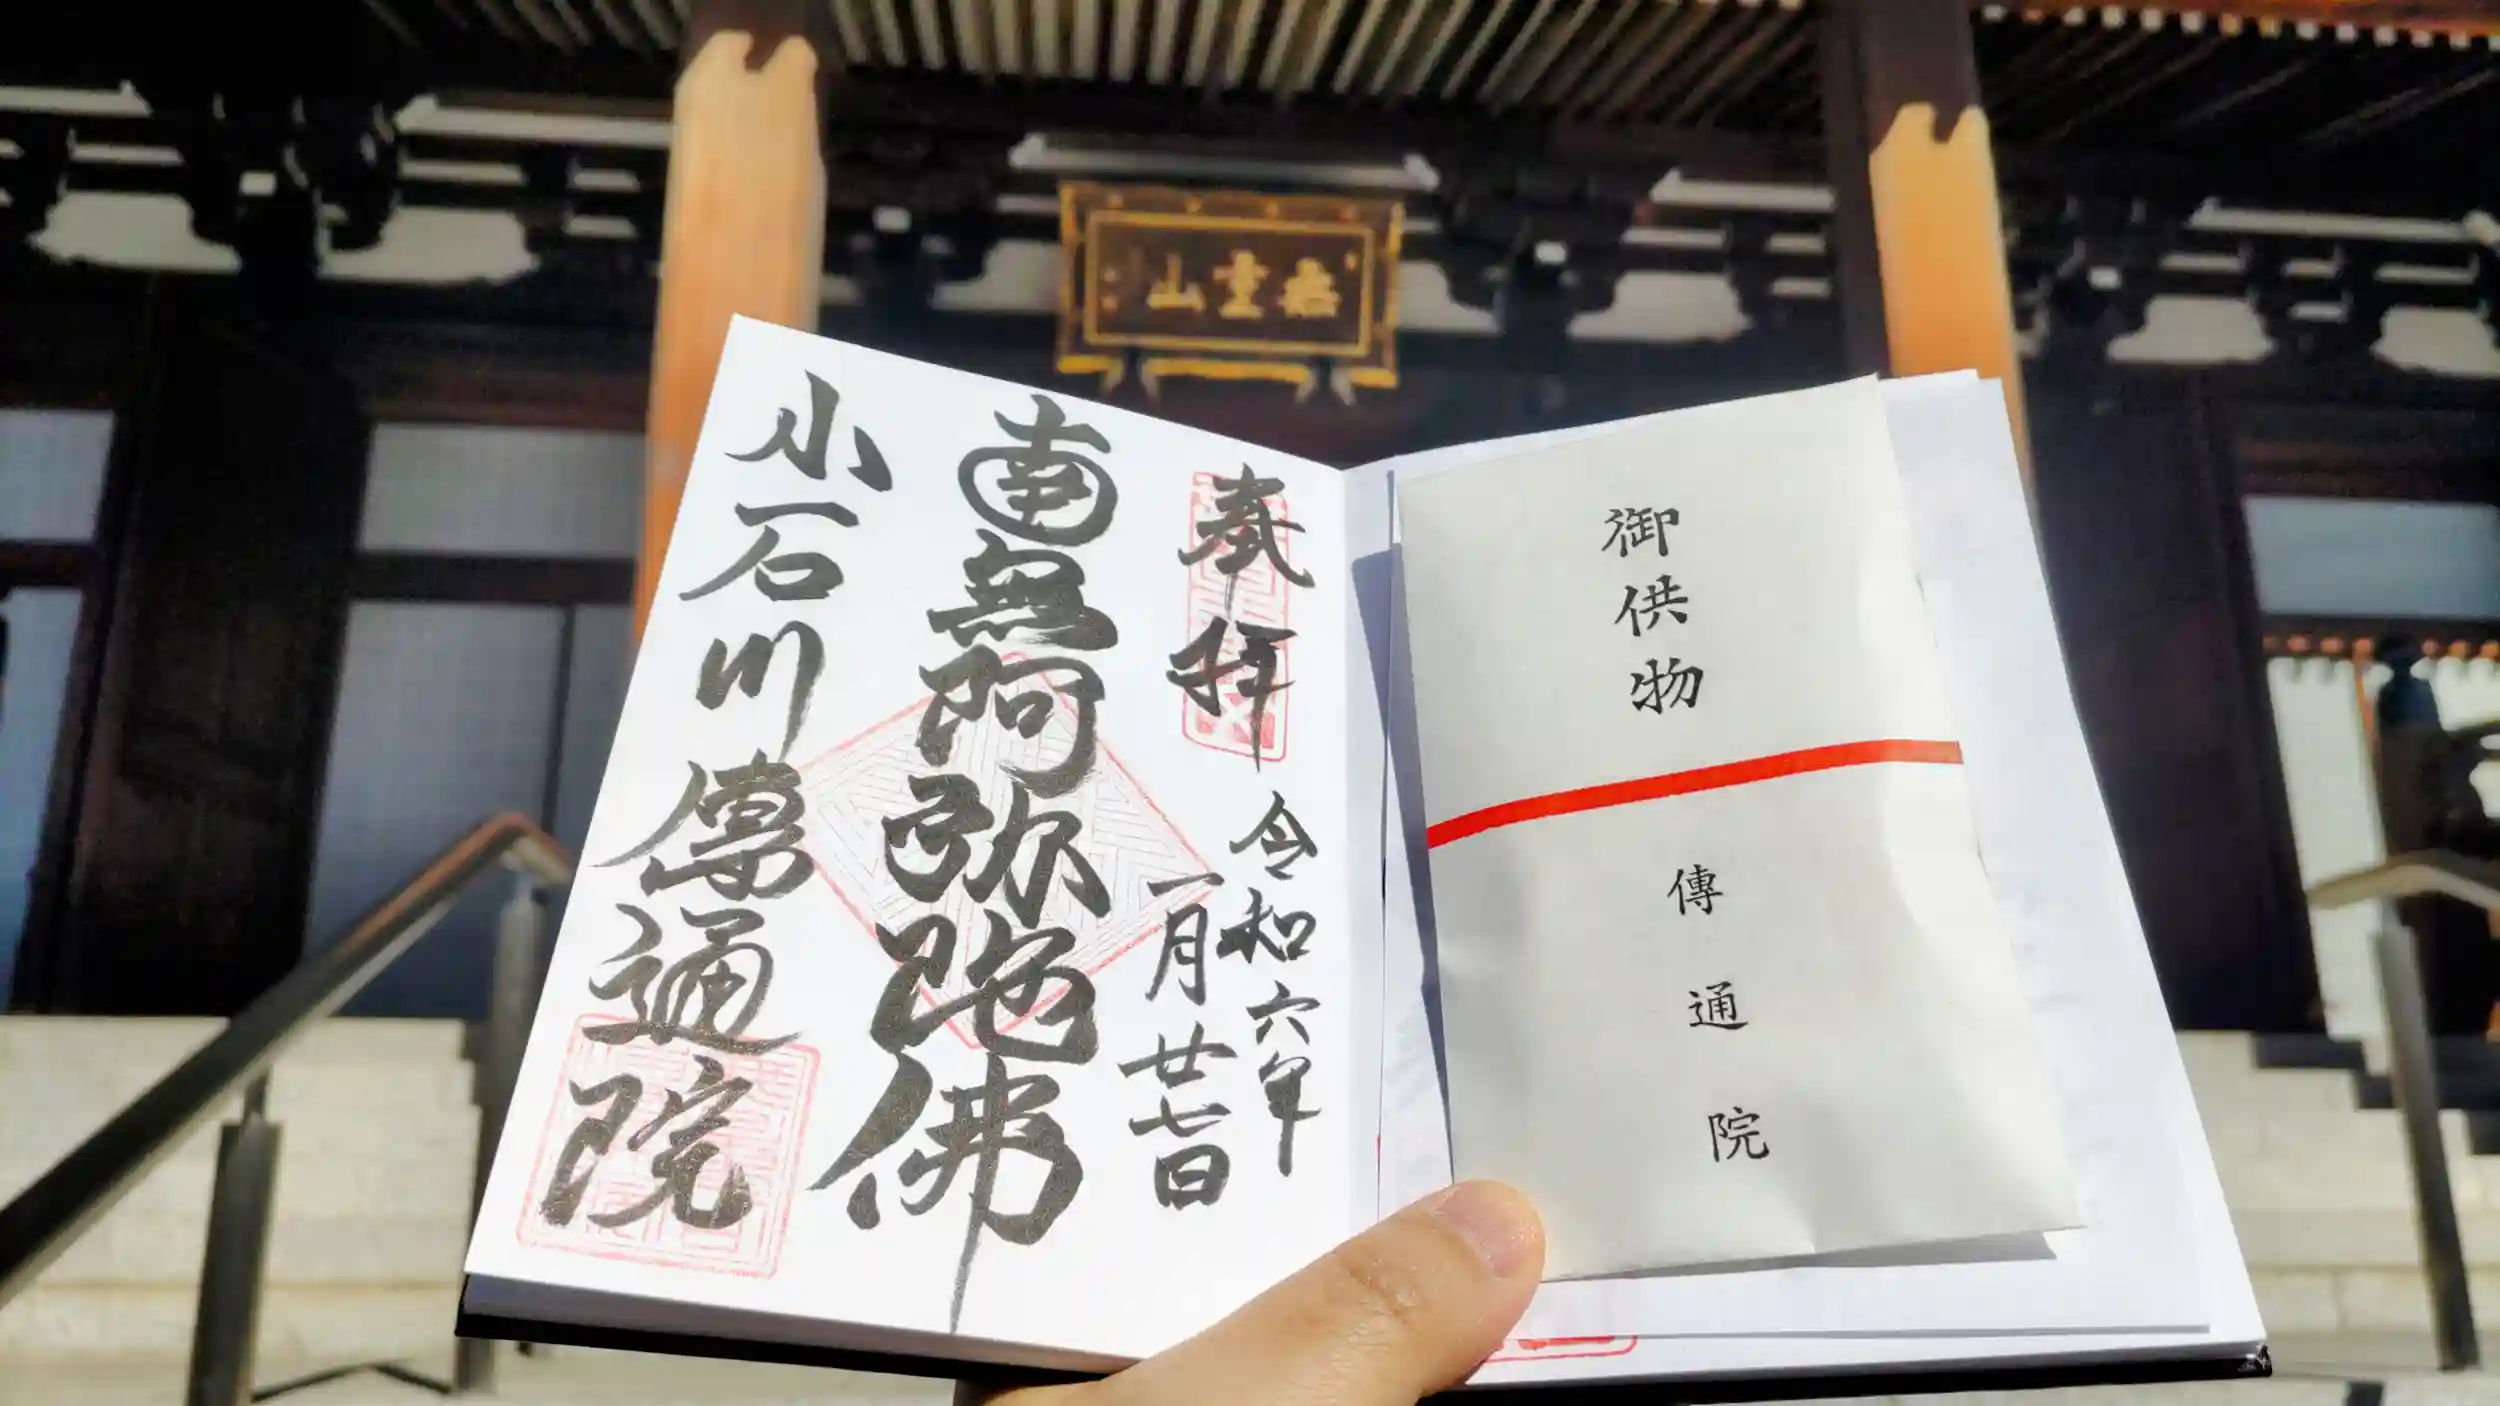 無量山
奉拝
令和六年
一月廿七日
南無阿弥陀佛
小石川傳通院
御供物
傳通院